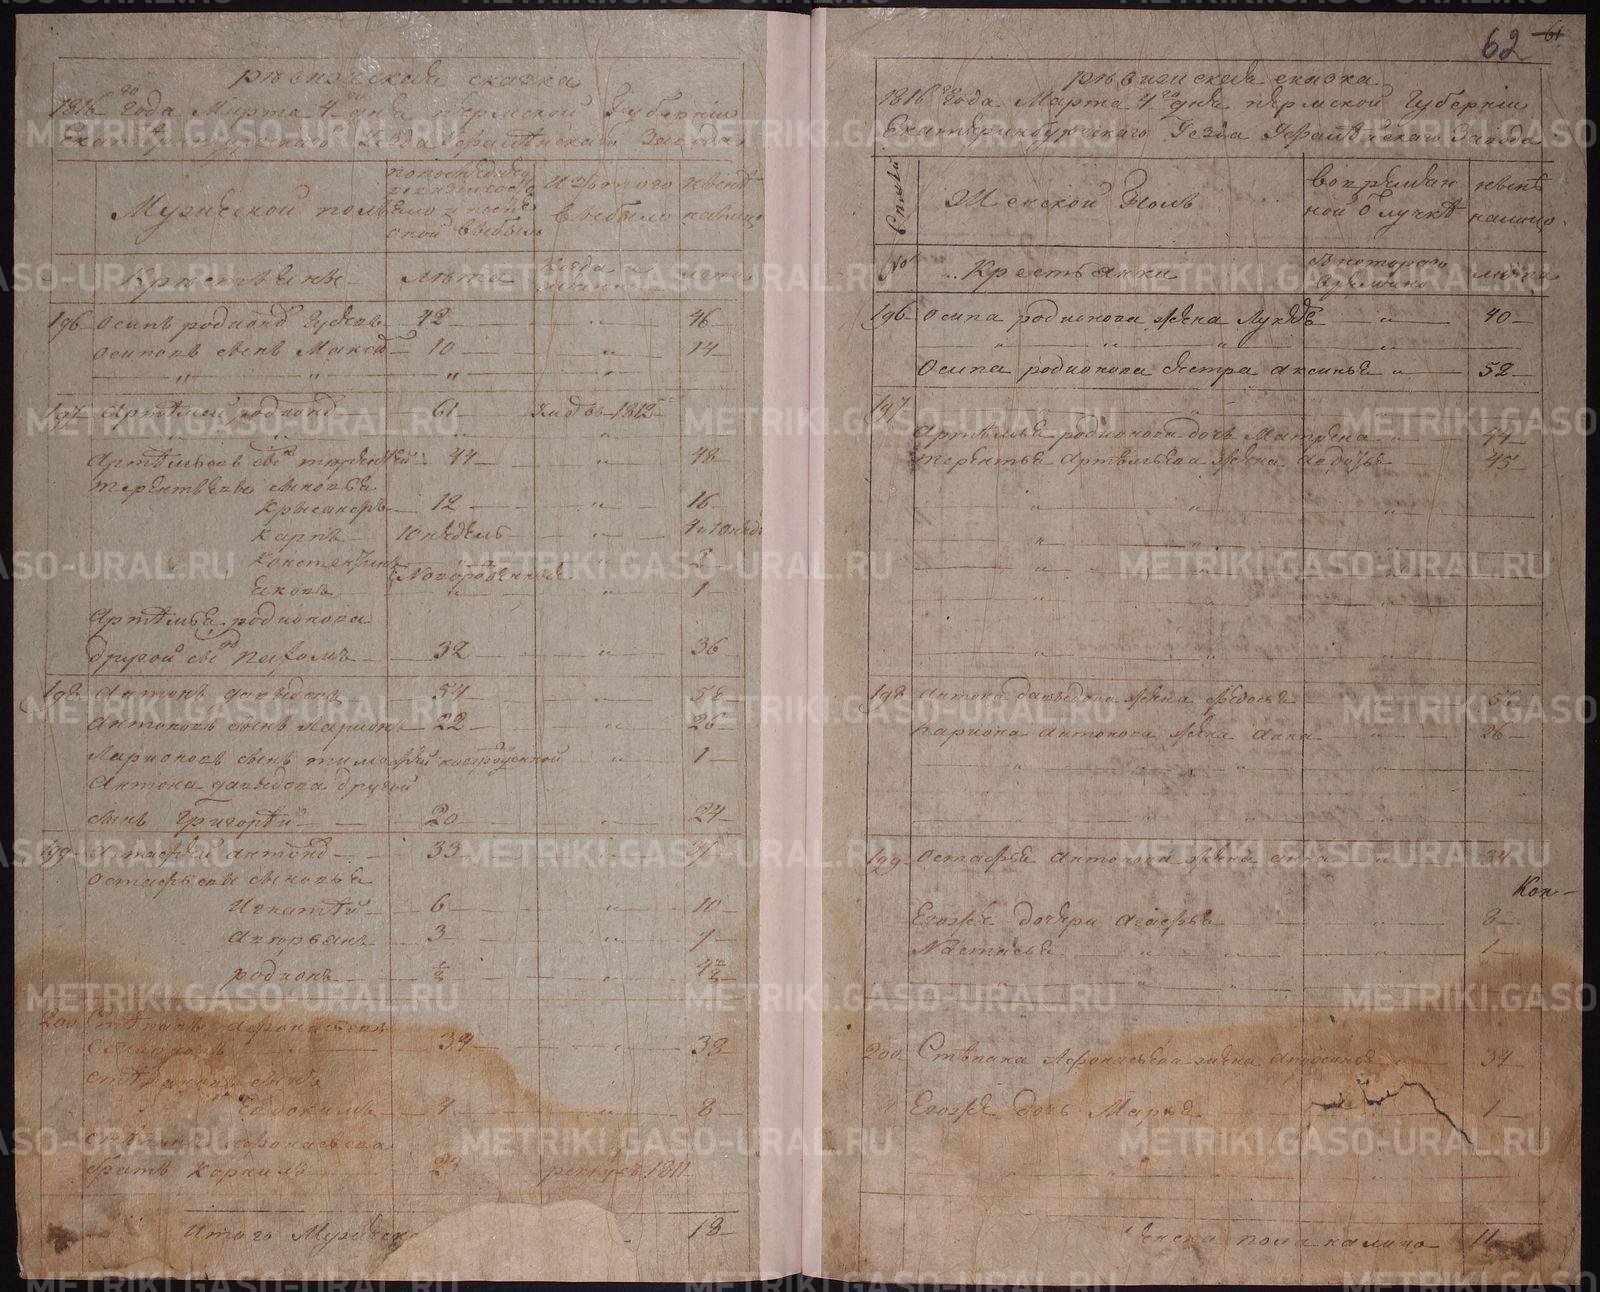 ревизская сказка
1816 го года Марта 4 го дня пермской Губернии
Екатеринбургского Уезда Уфалейского Завода
Мужеской полъ
по последней ревизии состояло и после оной выбыло
изъ того выбыло
ныне налицо
Крестьяне
лета
Когда именно
лета
196 Осипъ родионов Гусевъ 42 " 46
Осиповъ сынъ Максим 10 " 14
" " " "
197 Артемей родионов 61 умре въ 1812
Артемьевъ сынъ терентей 44 " 48
терентьевы сыновья
Крысанфъ 12 " 16
Карпъ 10 недель " 4 и 10 недель
Константинъ " 2
Новорожденные
Яковъ " " 1
Артемья родионова
другой сынъ Пахомъ 32 " 36
198 Антонъ давыдовъ 54 " 58
Антоновъ сынъ Ларионъ 22 " 26
Ларионовъ сынъ тимофей новорожденной " 1
Антона давыдова другой
сынъ Григорей 20 " 24
199 Астафей антонов 33 " 37
Остафьевы сыновья
Игнатей 6 " 10
Аверьянъ 3 " 7
родионъ 1/2 " 4 1/2
200 Степанъ Афонасьевъ
34 " 38
Степановъ сынъ
Евдокимъ 4 " 8
Степана Афонасьева
братъ Корнилъ 23 рекрут въ 1811
Итого Мужеска 18
62 61
ревизская сказка
1816 го года Марта 4 го дня пермской Губернии
Екатеринбургского Уезда Уфалейского Завода
№ Семей
Женской Полъ
во временной отлучке
ныне налицо
Крестьянки
с которого времени
лета
196 Осипа родионова жена Лукерья " 40
" " " "
Осипа родионова сестра аксинья " 52
197 " "
Артемья родионова дочь Матрена " 44
терентья Артемьева жена Авдотья 45
" " "
" "
" " "
" " "
" " "
" " "
198 Антона давыдова жена федосья 56
Лариона Антонова жена Анна " 26
" " "
" " "
" " "
199 Остафья Антонова жена анна " 34
Кон-
Егожъ дочери Агафья " 8
Настасья " " 1
" " "
200 Степана Афонасьева жена Апросинья 34
Егожъ дочь Марья 1
" " "
женска пола налицо 11
METRIKI.GASO-URAL.RU